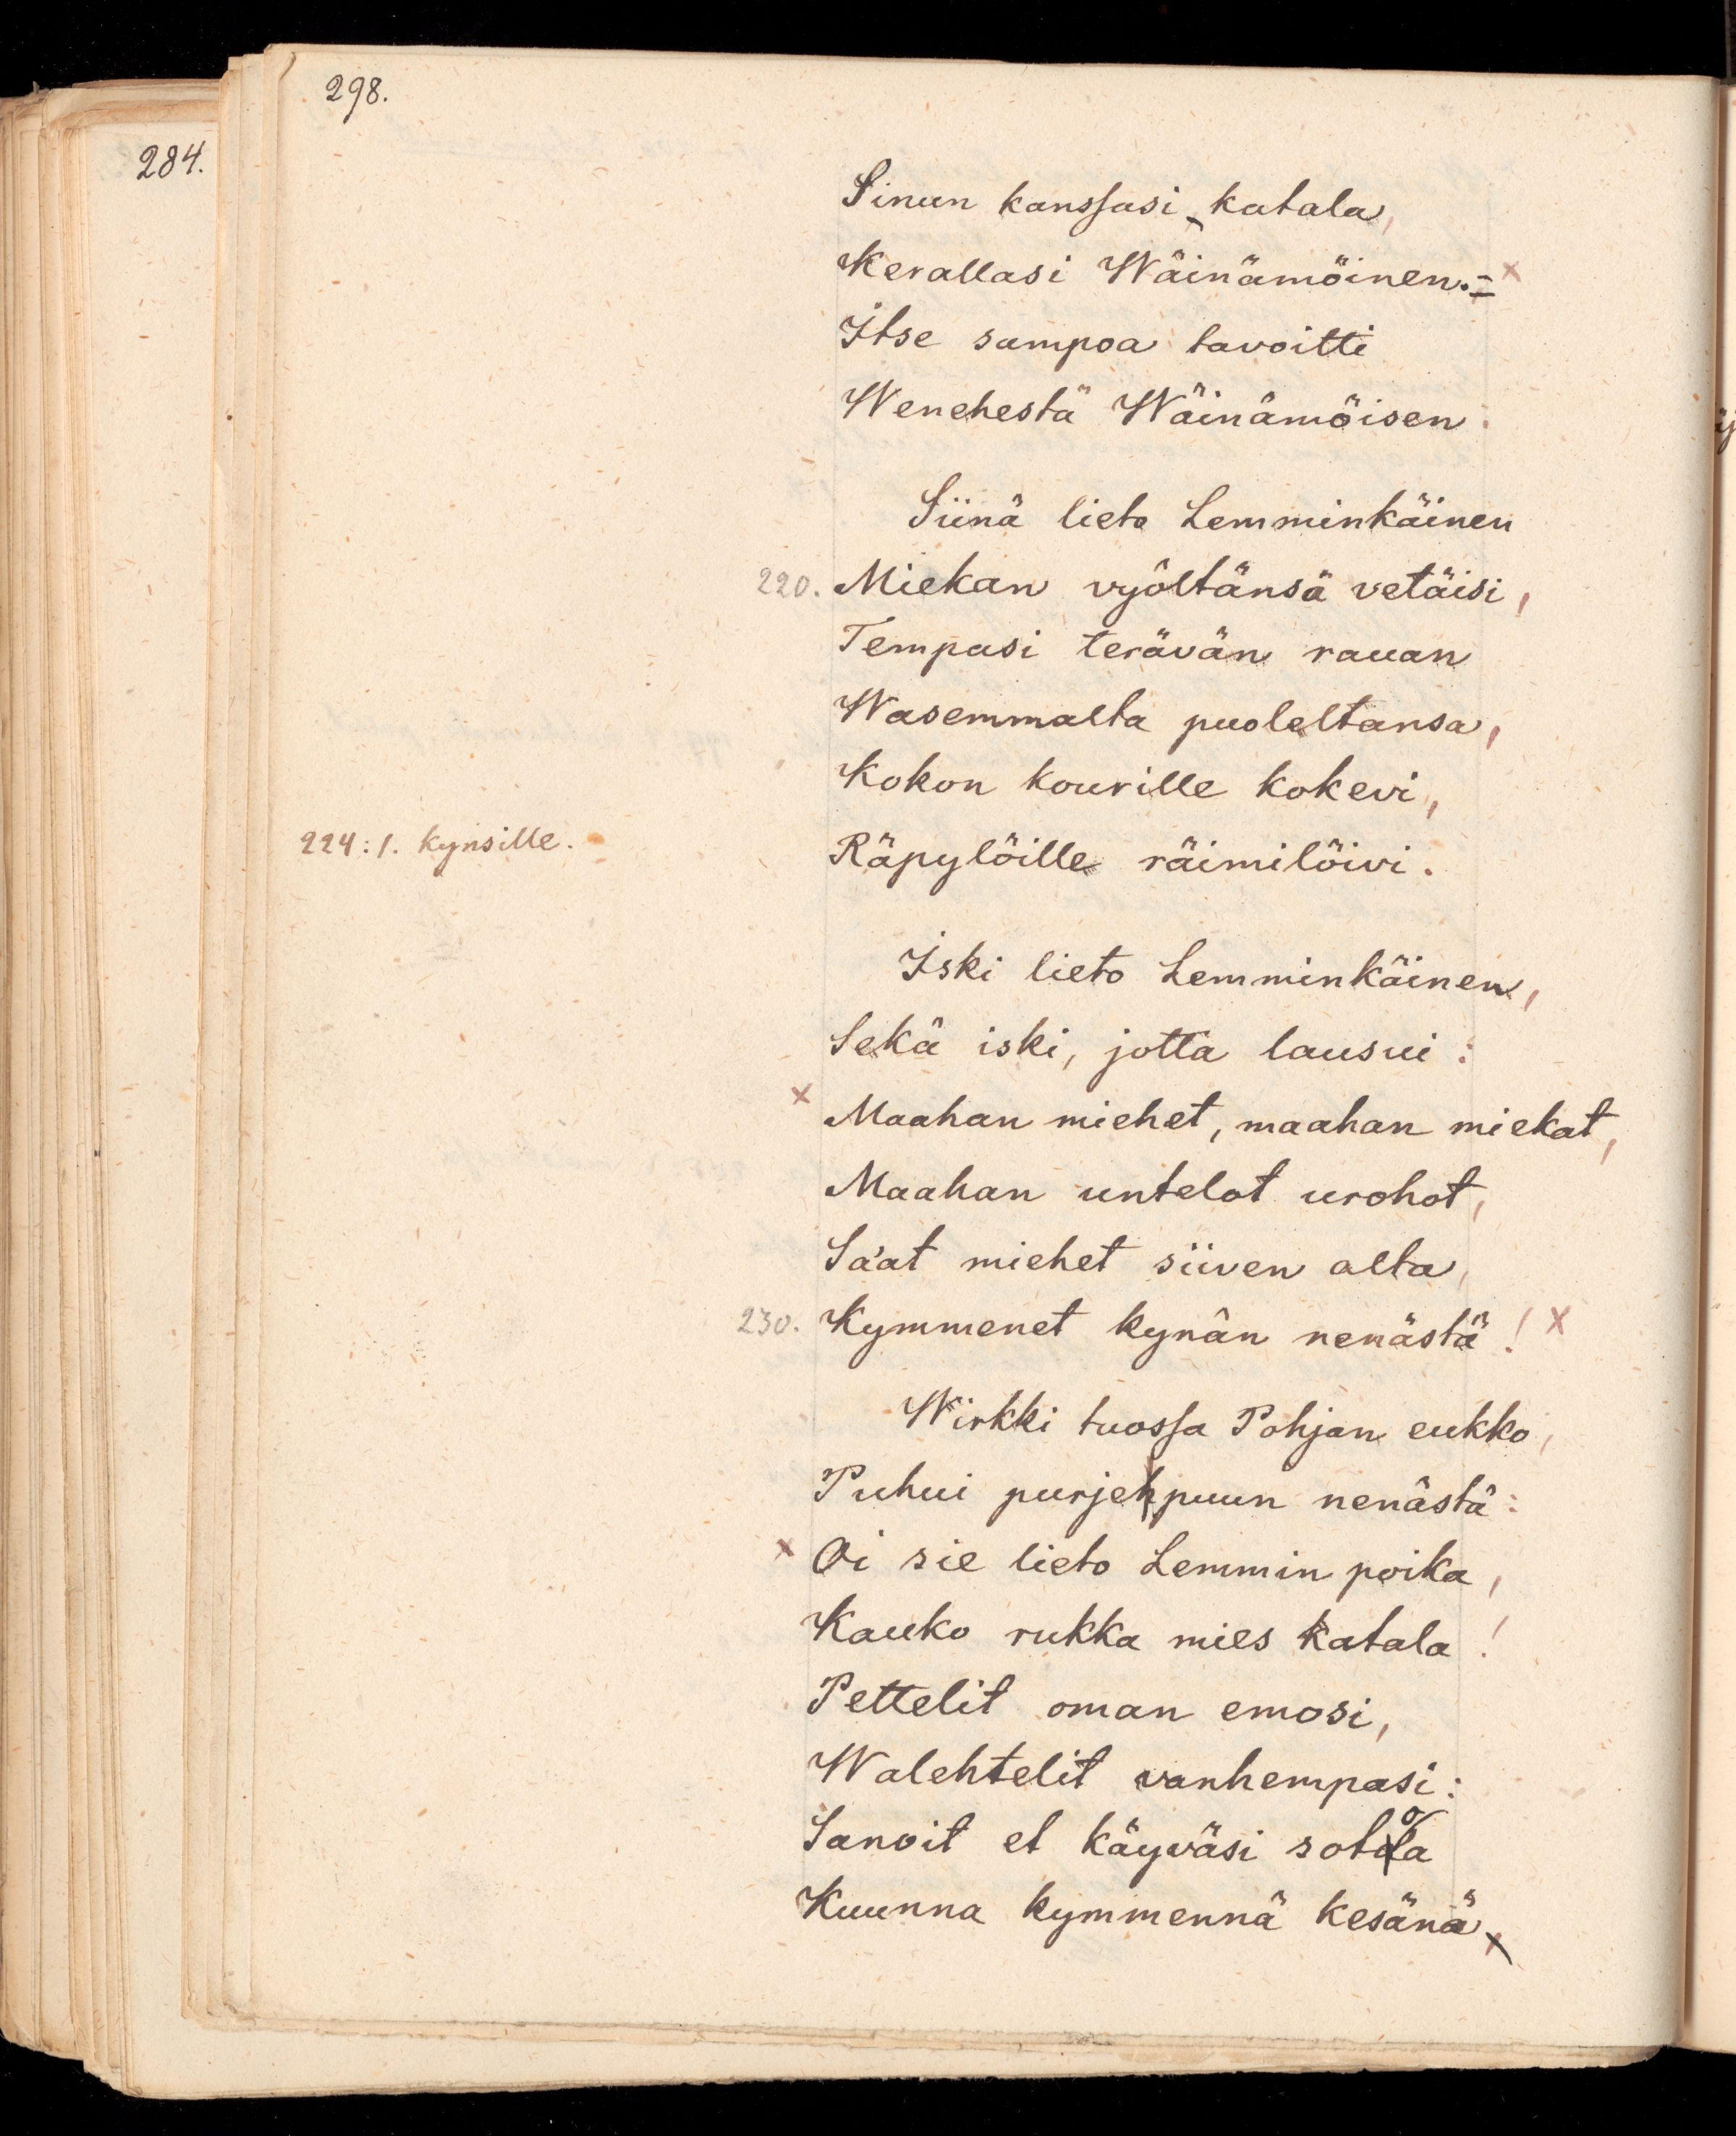 298.
284.
Sinun kanssasi katala,
Kerallasi Wäinämöinen. =
Itse sampoa tavoitti
Wenehestä Wäinämöisen.
Siinä lieto Lemminkäinen
220. Miekan vyöltänsä vetäisi,
Tempasi terävän rauan
Wasemmalta puoleltansa,
Kokon kourille kokevi,
224: l. kynsille.
Räpylöille räimilöivi.
Iski lieto Lemminkäinen,
Sekä iski, jotta lausui:
x Maahan miehet, maahan miekat,
Maahan untelot urohot,
Sa'at miehet siiven alta,
230. Kymmenet kynän nenästä! x
Wirkki tuossa Pohjan eukko,
Puhui purjehpuun nenästä:
x Oi sie lieto Lemmin poika,
Kauko rukka mies katala!
Pettelit oman emosi,
Walehtelit vanhempasi:
Sanoit et käyväsi sotoa
Kuunna kymmennä kesänä,